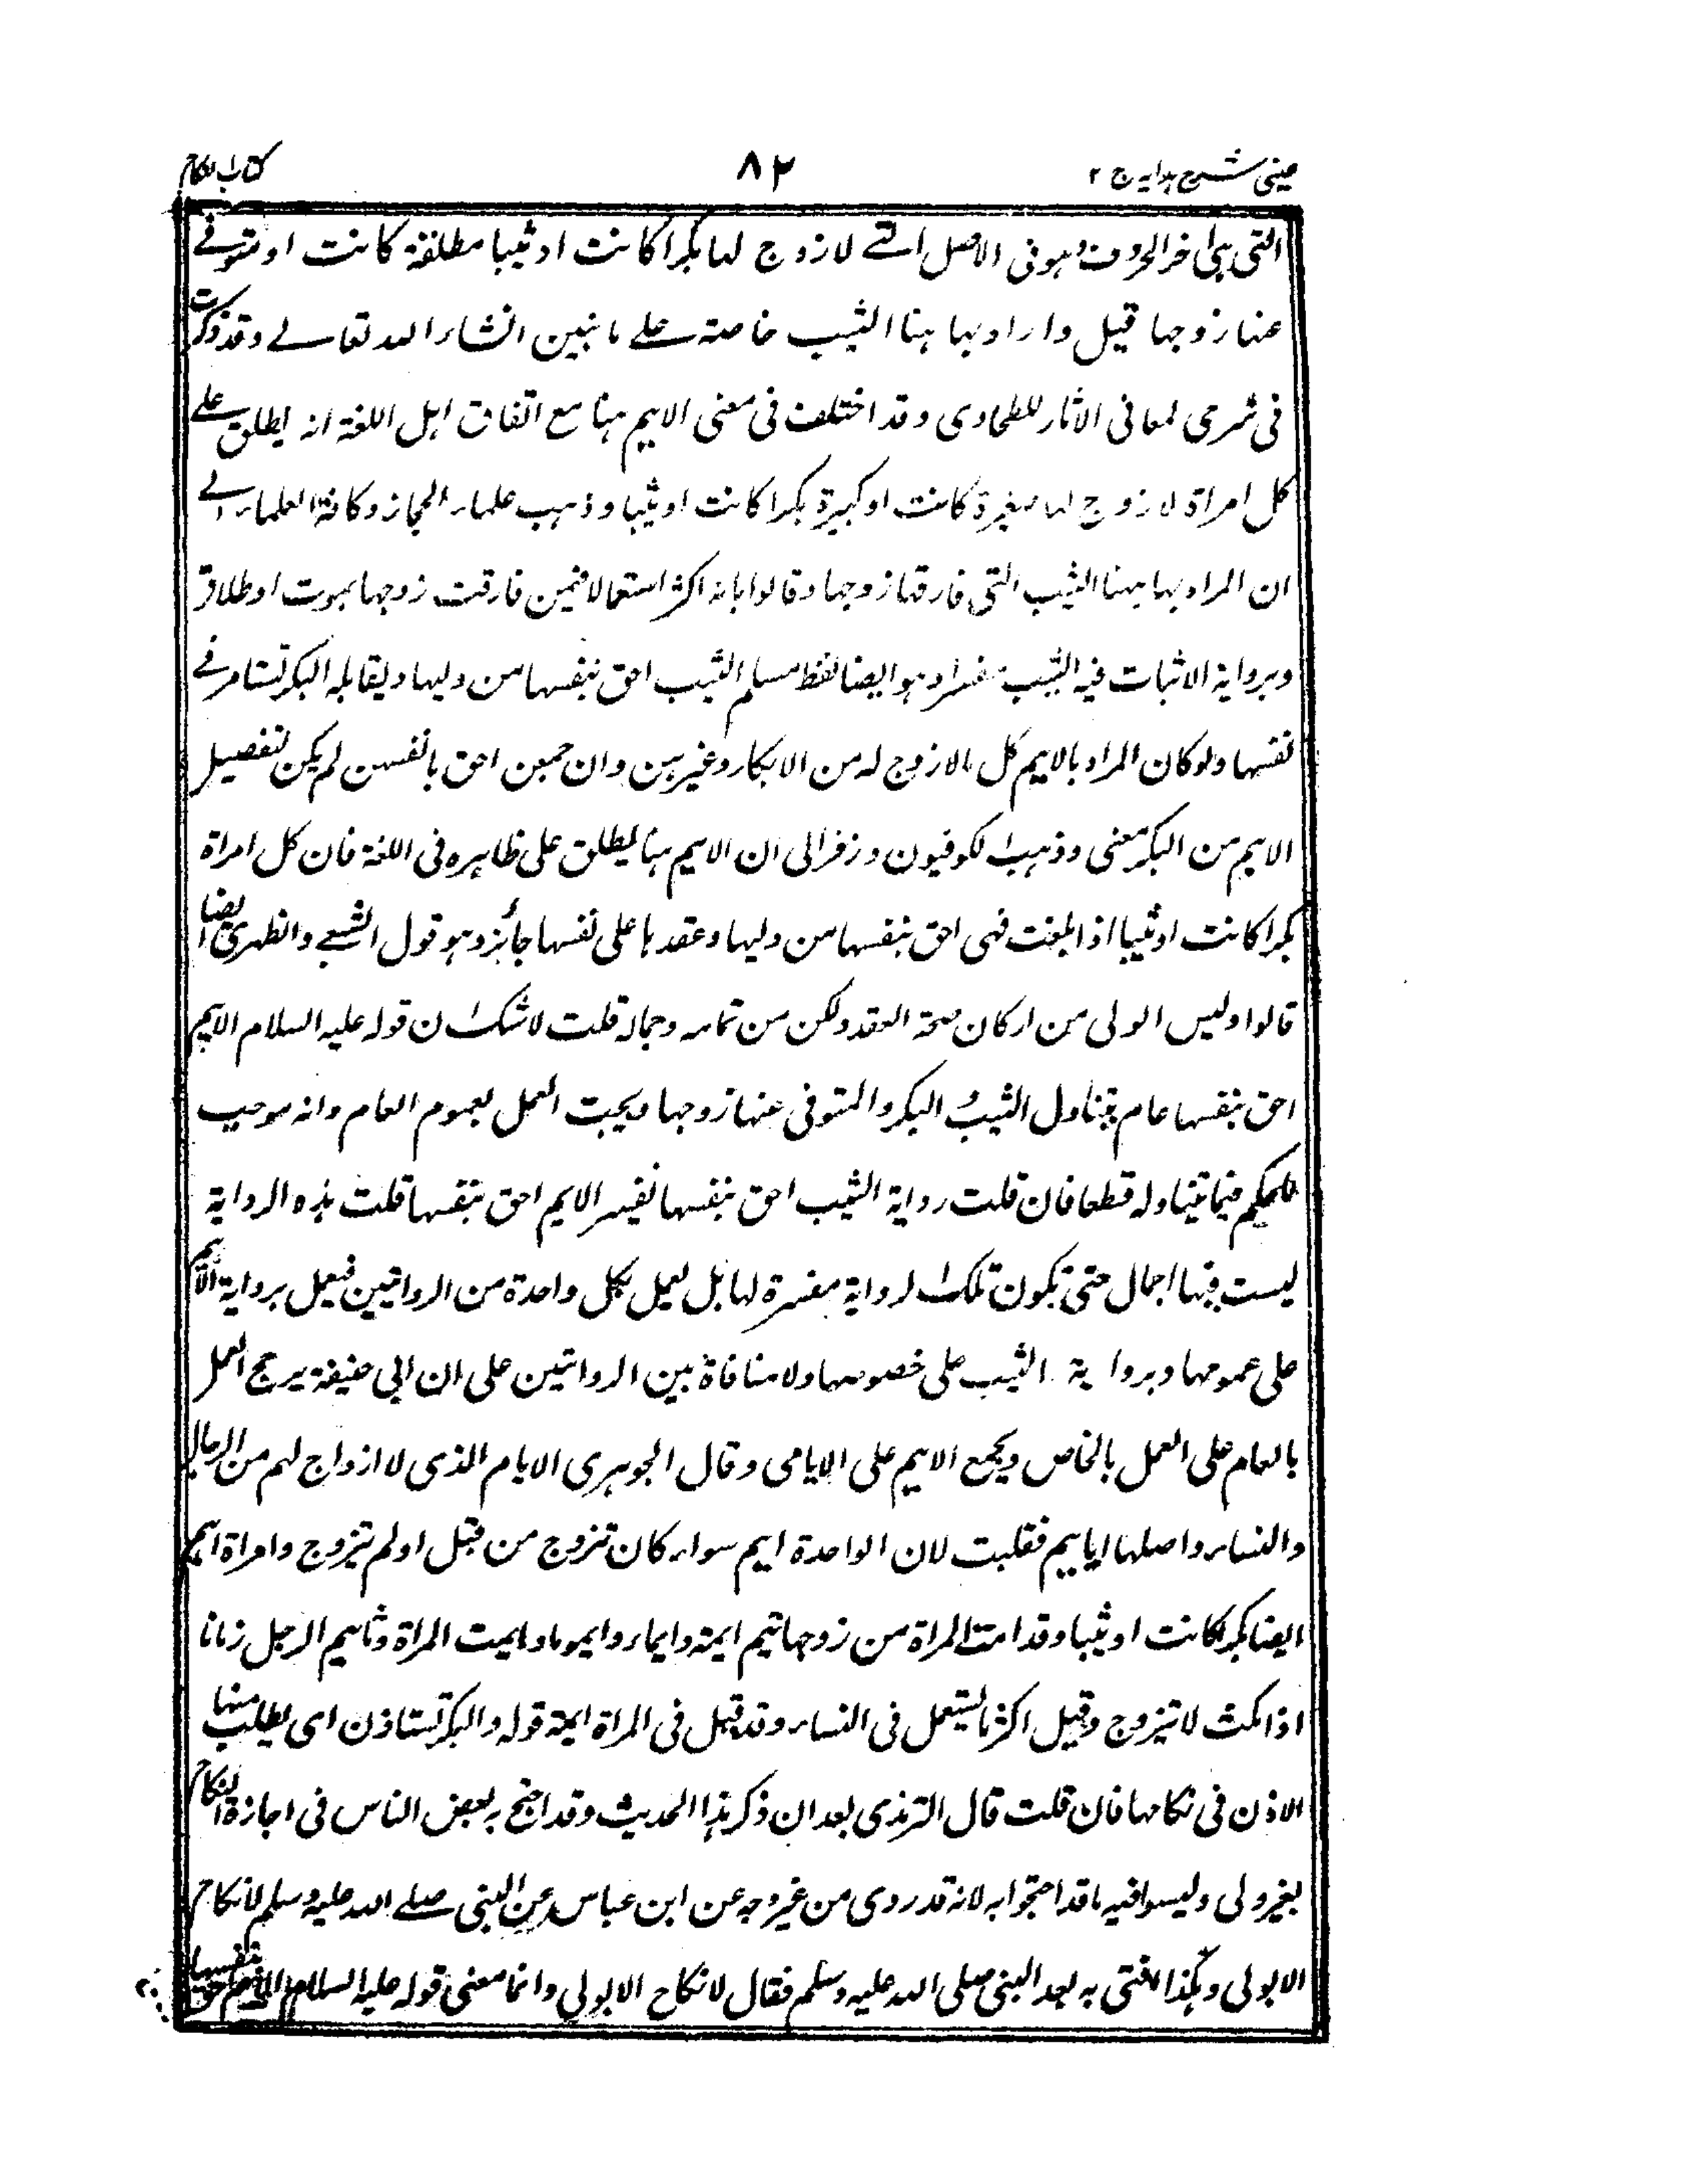 عینی شرح ہدایہ ج ۲
۸۲
کتاب النکاح
التی ہی اخر الحروف وہو فی الاصل التے لا زوج لہا بکرا کانت او ثیبا مطلقة کانت او متوفے
عنہا زوجہا قیل واراد بہا ہنا الثیب خاصة علے ما نبین انشاء اللہ تعالے وقد ذکرت
فی شرحی لمعانی الاثار للطحاوی وقد اختلف فی معنی الایم ہنا مع اتفاق اہل اللغة انہ یطلق علے
کل امراة لا زوج لہا صغیرة کانت او کبیرة بکرا کانت او ثیبا وذہب علماء الحجاز وکافة العلماء الے
ان المراد بہا ہہنا الثیب التی فارقہا زوجہا وقالوا بانہ اکثر استعمالا فیمن فارقت زوجہا بموت او طلاق
وبروایة الاثبات فیہ الثیب مفسرا وہو ایضا لفظ مسلم الثیب احق بنفسہا من ولیہا ویقابلہ البکر تستامر فے
نفسہا ولو کان المراد بالایم کل مالا زوج لہ من الابکار وغیرہن وان جمیعن احق بانفسہن لم یکن لتفصیل
الایم من البکر معنی وذہب الکوفیون وزفر الی ان الایم ہنا یطلق علی ظاہرہ فی اللغة فان کل امراة
بکرا کانت او ثیبا اذا بلغت فہی احق بنفسہا من ولیہا وعقدہا علی نفسہا جائز وہو قول الشعبے والزہری ایضا
قالوا ولیس الولی من ارکان صحة العقد ولکن من تمامہ وجمالہ قلت لا شک ان قولہ علیہ السلام الایم
احق بنفسہا عام یتناول الثیب والبکر والمتوفی عنہا زوجہا ویجب العمل بعموم العام وانہ موجب
للحکم فیما یتناولہ قطعا فان قلت روایة الثیب احق بنفسہا تفسر الایم احق بنفسہا قلت ہذہ الروایة
لیست فیہا اجمال حتی تکون تلک الروایة مفسرة لہا بل یعمل بکل واحدة من الروایتین فیعمل بروایة الایم
علی عمومہا وبروایة الثیب علی خصوصہا ولا منافاة بین الروایتین علی ان ابی حنیفة یرجح العمل
بالعام علی العمل بالخاص ویجمع الایم علی الایامی وقال الجوہری الایام الذی لا ازواج لہم من الرجال
والنساء واصلہا ایایم فقلبت لان الواحدة ایم سواء کان تزوج من قبل او لم یتزوج وامراة ایم
ایضا بکرا کانت او ثیبا وقد امت المراة من زوجہا تیم ایمة وایما وایوما وایمت المراة وتایم الرجل زمانا
اذا مکث لا یتزوج وقیل اکثر ما یستعمل فی النساء وقد قیل فی المراة ایمة قولہ والبکر تستاذن ای یطلب منہا
الاذن فی نکاحہا فان قلت قال الترمذی بعد ان ذکر ہذا الحدیث وقد احتج بہ بعض الناس فی اجازة النکاح
بغیر ولی ولیس فیہ ما قد احتجوا بہ لانہ قد روی من غیر وجہ عن ابن عباس عن النبی صلے اللہ علیہ وسلم لا نکاح
الا بولی وہکذا افتی بہ بعد النبی صلی اللہ علیہ وسلم فقال لا نکاح الا بولی وانما معنی قولہ علیہ السلام الایم احق بنفسہا